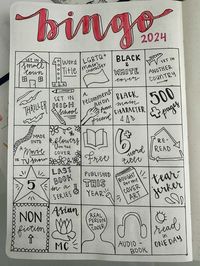 bingo
2024
SET IN
small
town
1
Word
Title
LGBTQ+
main
character
BLACK
&
WHITE
cover
SET IN
ANOTHER
COUNTRY
THRILLER
SET IN
HIGH
SCHOOL
a
recommendation
from
Black
main
CHARACTER
500
pages
MADE
INTO
Movie
TV Show
flowers
on the
cover
Free
6+
word
title
RE-
READ
5
LAST
BOOK
IN A
SERIES
PUBLISHED
THIS
YEAR
BOUGHT
FOR THE
COVER
ART
tear
jerker
NON
fiction
Asian
MC
REAL
PERSON
ON
COVER
AUDIO-
BOOK
read
in
ONE DAY